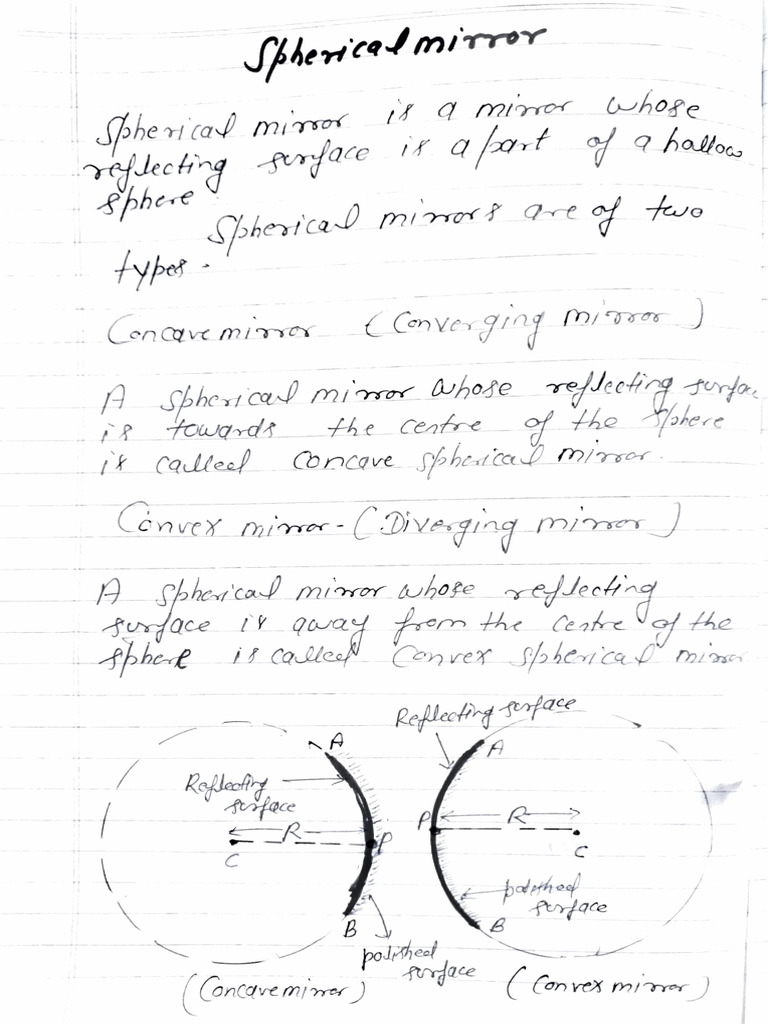 Spherical mirror
Spherical mirror is a mirror whose
reflecting surface is a part of a hallow
sphere
Spherical mirrors are of two
types.
Concave mirror (Converging mirror)
A spherical mirror whose reflecting surface
is towards the centre of the sphere
is called concave spherical mirror.
Convex mirror - (Diverging mirror)
A spherical mirror whose reflecting
surface is away from the centre of the
sphere is called convex spherical mirror
A
Reflecting
surface
R
C
P
B
polished
surface
(Concave mirror)
Reflecting surface
A
P
R
C
polished
surface
B
(Convex mirror)